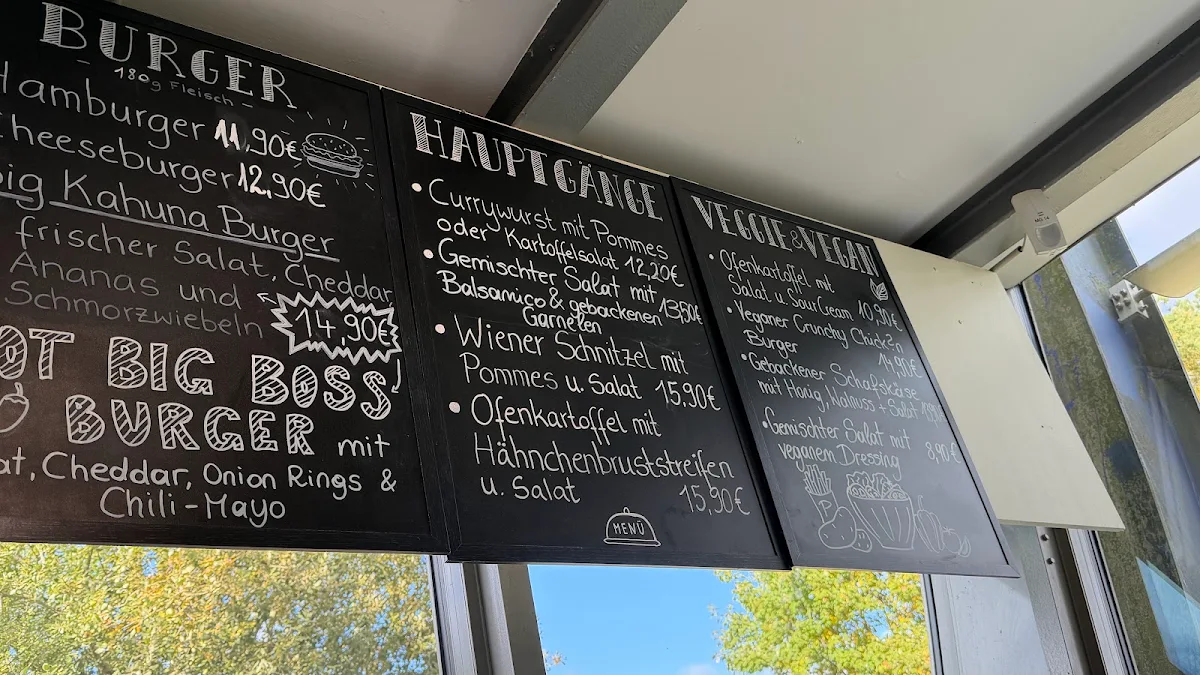 BURGER
- 180g Fleisch -
Hamburger 11,90€
Cheeseburger 12,90€
Big Kahuna Burger
frischer Salat, Cheddar,
Ananas und
Schmorzwiebeln 14,90€
OT BIG BOSS
BURGER mit
at, Cheddar, Onion Rings &
Chili-Mayo
HAUPTGÄNGE
• Currywurst mit Pommes
oder Kartoffelsalat 12,20€
• Gemischter Salat mit 13,50€
Balsamico & gebackenen
Garnelen
• Wiener Schnitzel mit
Pommes u. Salat 15,90€
• Ofenkartoffel mit
Hähnchenbruststreifen
u. Salat 15,90€
MENÜ
VEGGIE & VEGAN
• Ofenkartoffel mit
Salat u. Sour Cream 10,90€
• Veganer Crunchy Chick?n
Burger 14,90€
• Gebackener Schafskäse
mit Honig, Walnuss + Salat
• Gemischter Salat mit 8,90€
veganem Dressing